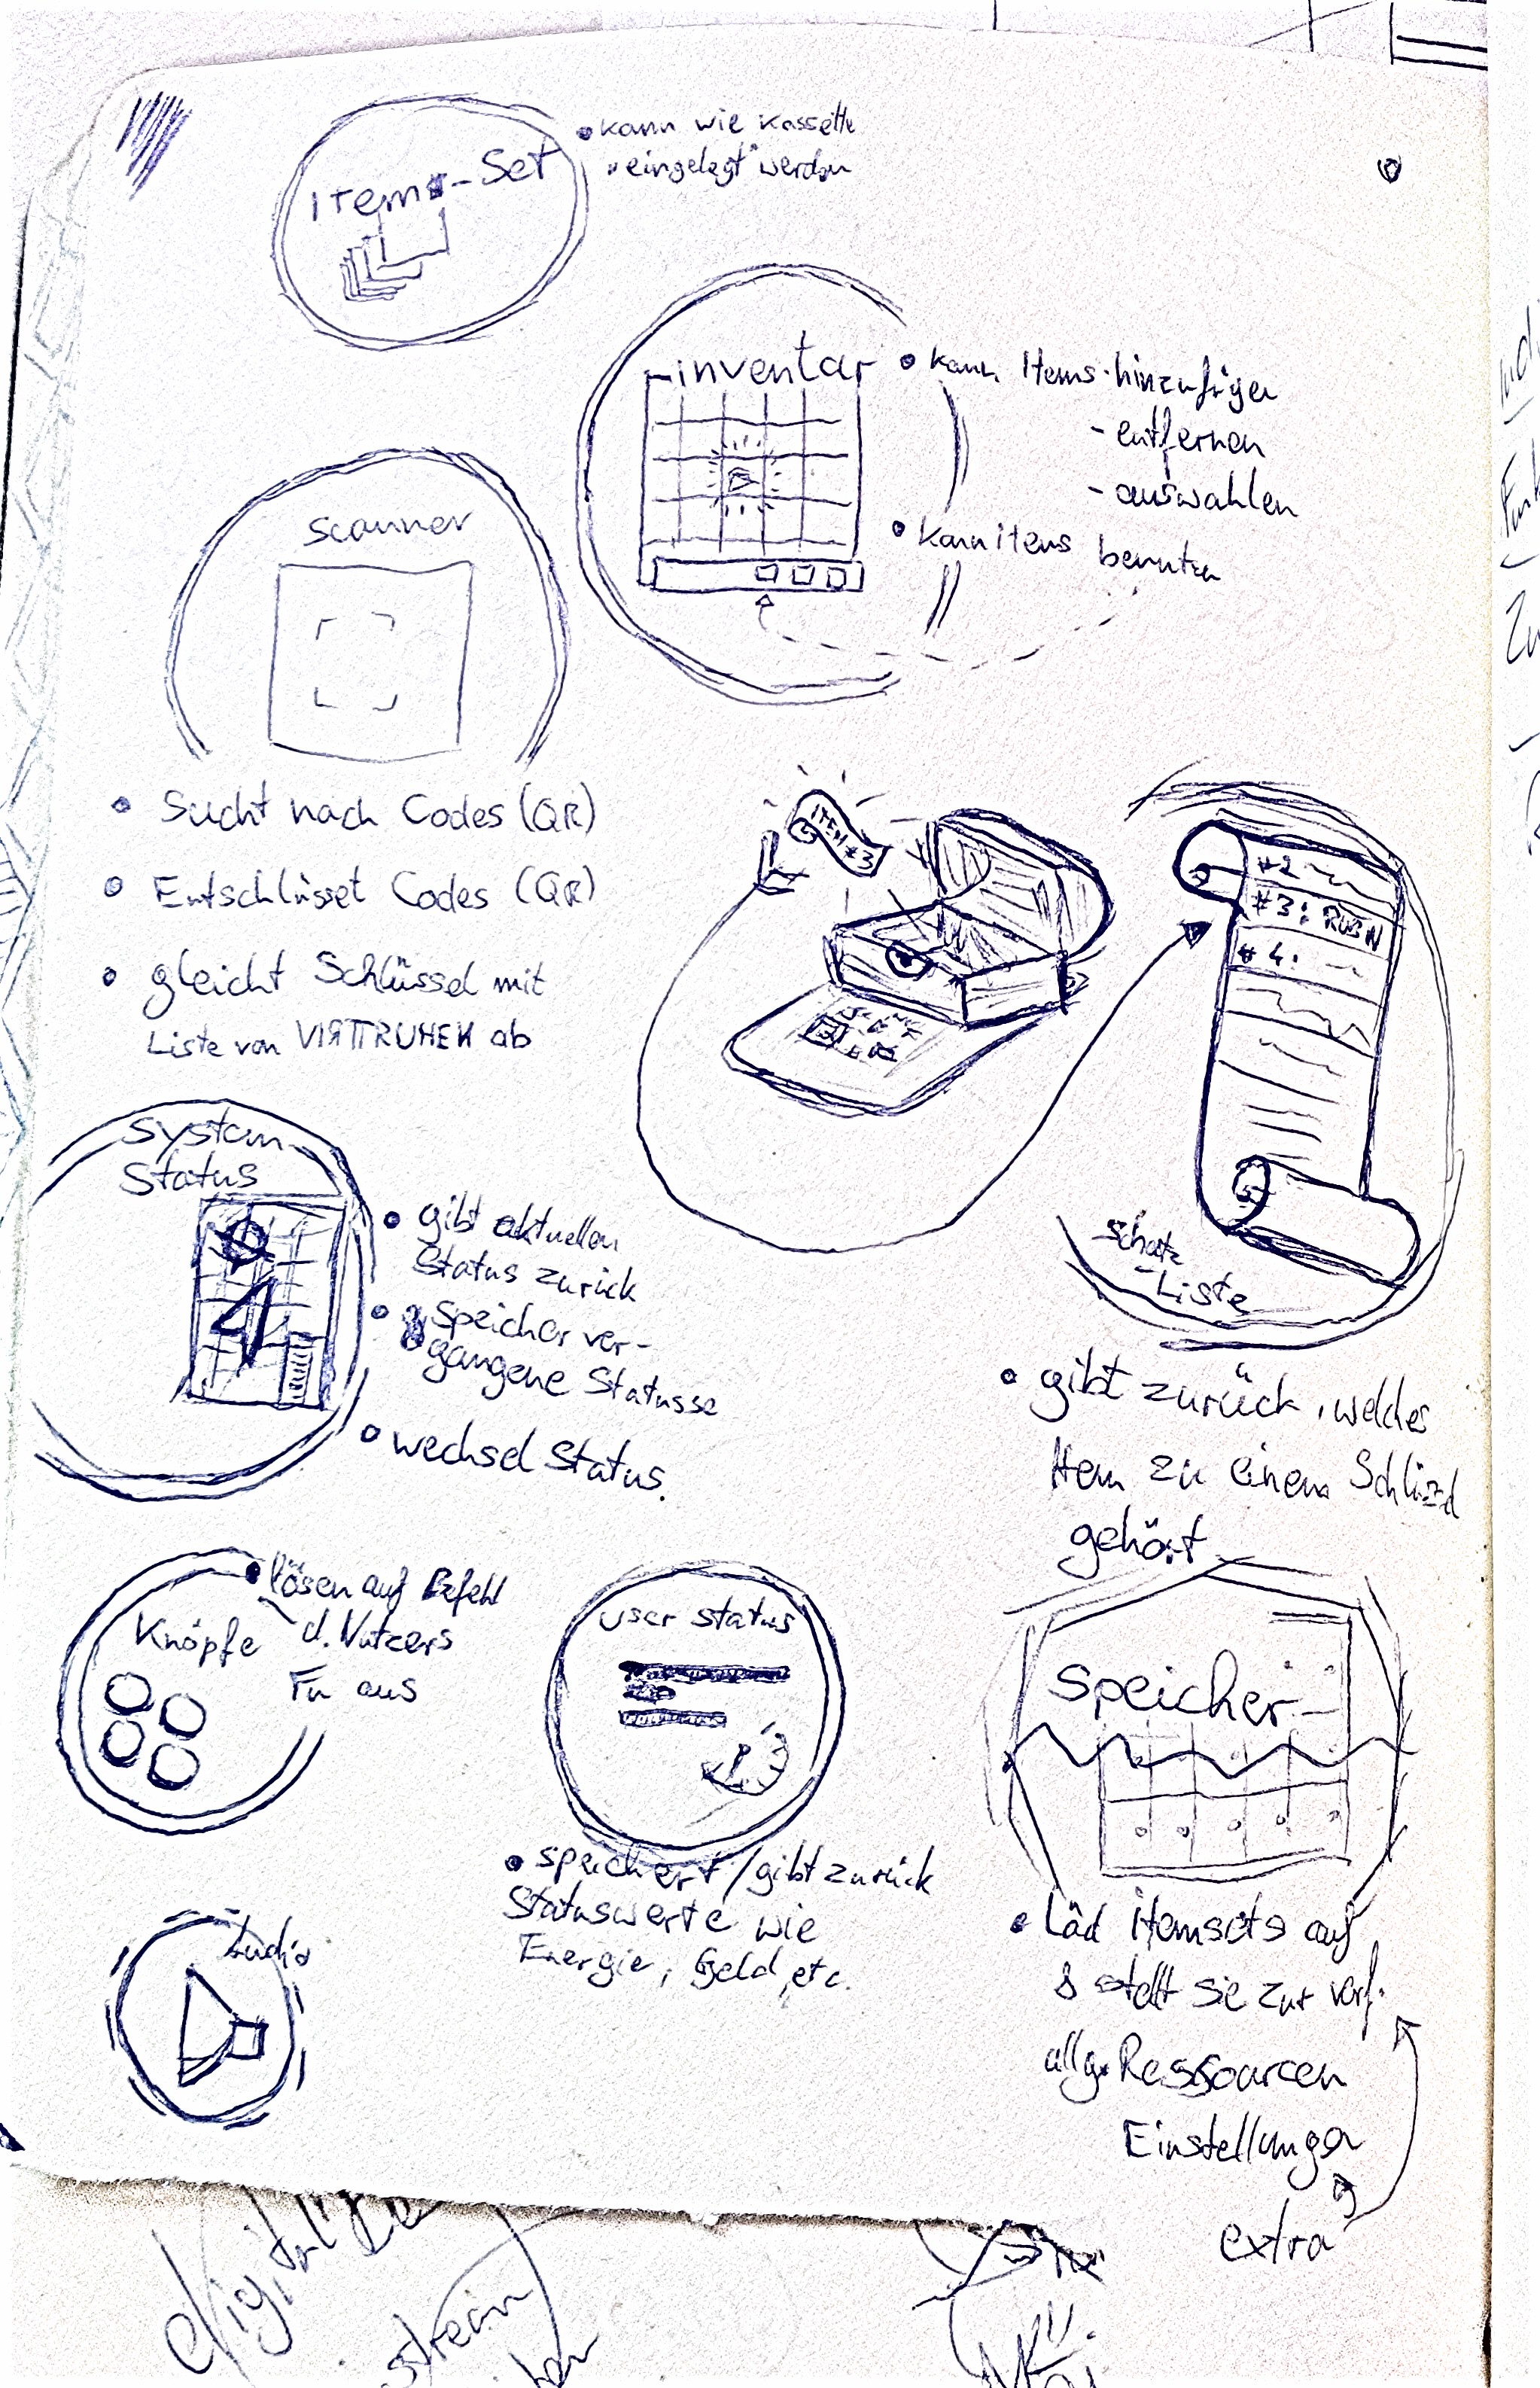 Items-Set
• kann wie Kassette
"eingelegt" werden
inventar
• kann Items hinzufügen
- entfernen
- auswahlen
• kann items benutzen
scanner
• Sucht nach Codes (QR)
• Entschlüsset Codes (QR)
• gleicht Schlüssel mit
Liste von VIRTTRUHEN ab
ITEM #3
#2
#3: RUBIN
#4:
Schatz
-Liste
• gibt zurück, welches
Item zu einem Schlüssel
gehört
System
Status
4
• gibt aktuellen
Status zurück
• Speicher ver-
gangene Statusse
• wechsel Status.
Knöpfe
• lösen auf Befehl
d. Nutzers
Fn aus
user status
• speichert/gibt zurück
Statuswerte wie
Energie, Geld, etc.
Speicher
• Läd itemsets auf
& stellt sie zur verf.
allg. Ressourcen
Einstellungen
extra
Audio
digitalize